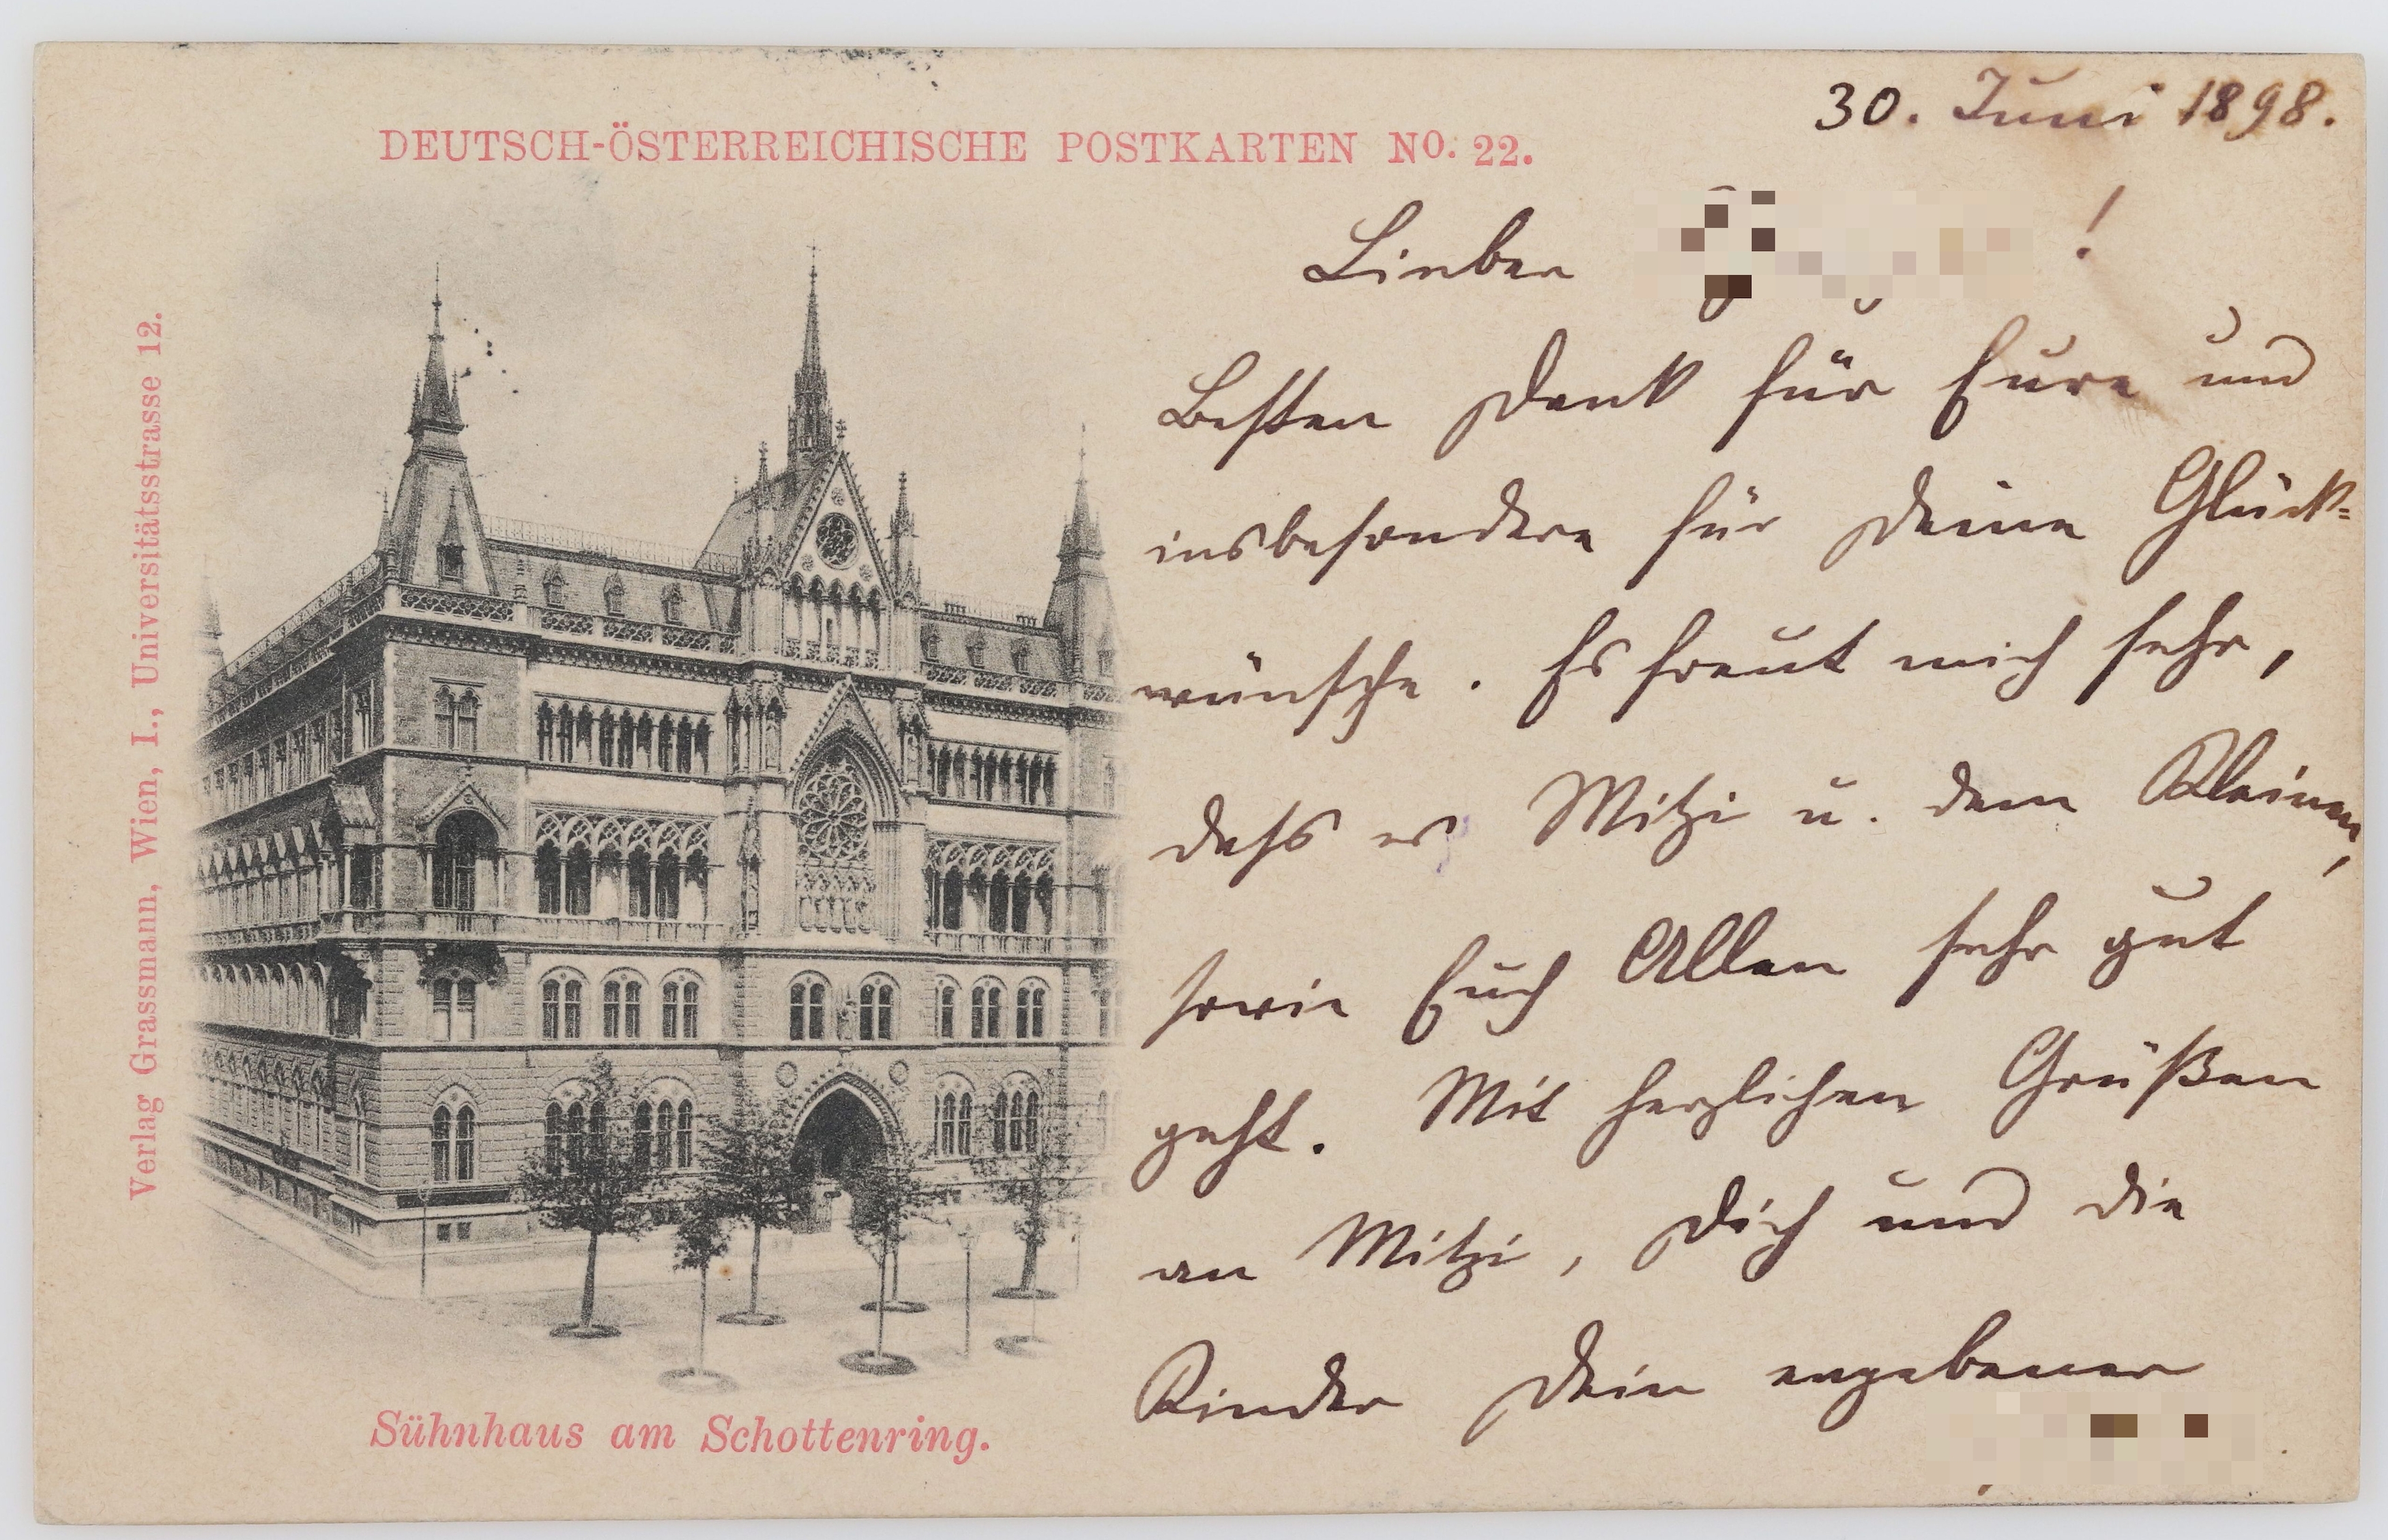 30. Juni 1898.
DEUTSCH-ÖSTERREICHISCHE POSTKARTEN NO. 22.
Verlag Grassmann, Wien, I., Universitätsstrasse 12.
Sühnhaus am Schottenring.
Lieber !
Besten Dank für Eure und
insbesondere für Deine Glück-
wünsche. Es freut mich sehr,
dass es Mitzi u. dem Kleinen,
sowie Euch Allen sehr gut
geht. Mit herzlichen Grüßen
an Mitzi, Dich und die
Kinder Dein ergebener